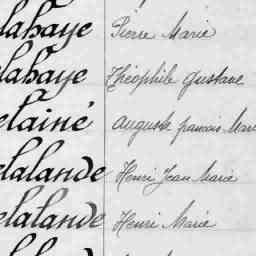 lahaye Pierre Marie
lahaye Théophile Gustave
elainé Auguste francois Marie
lalande Henri Jean Marie
elalande Henri Marie